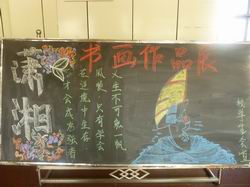 书画作品展
潇湘
人生不可能一帆
风顺，只有学会
在逆境中生存
才会成为强者